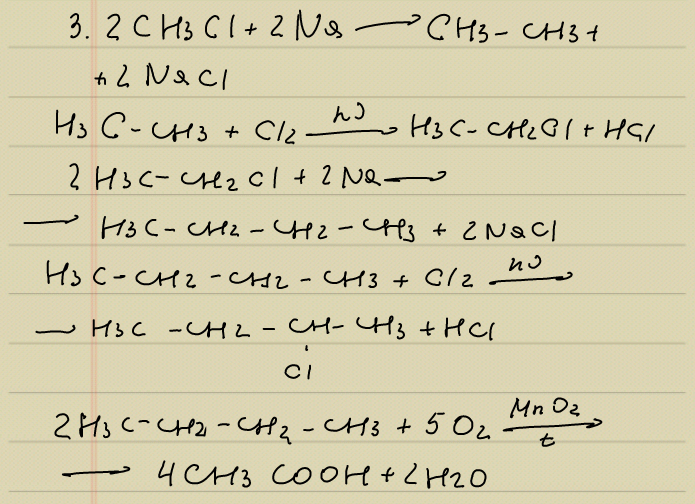 3. 2 CH3Cl + 2 Na ⟶ CH3 - CH3 +
+ 2 NaCl
H3C - CH3 + Cl2 hν⟶ H3C - CH2Cl + HCl
2 H3C - CH2Cl + 2 Na ⟶
⟶ H3C - CH2 - CH2 - CH3 + 2 NaCl
H3C - CH2 - CH2 - CH3 + Cl2 hν⟶
— H3C - CH2 - CH - CH3 + HCl
Cl
2H3C - CH2 - CH2 - CH3 + 5 O2 MnO2⟶t
⟶ 4CH3COOH + 2H2O